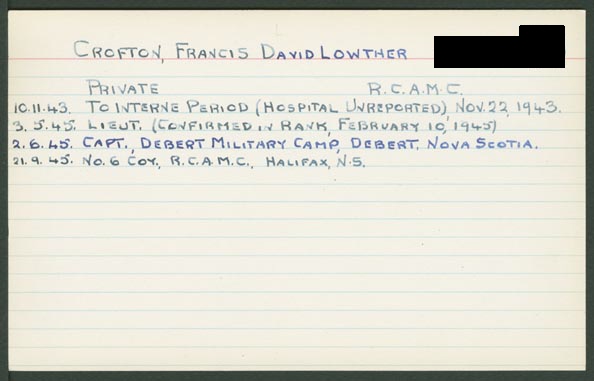 CROFTON, FRANCIS DAVID LOWTHER
PRIVATE R.C.A.M.C.
10.11.43. TO INTERNE PERIOD (HOSPITAL UNREPORTED) NOV. 22, 1943.
3. 5. 45. LIEUT. (CONFIRMED IN RANK, FEBRUARY 10, 1945)
2. 6. 45. CAPT., DEBERT MILITARY CAMP, DEBERT, NOVA SCOTIA.
21. 9. 45. NO. 6 COY., R.C.A.M.C., HALIFAX, N.S.